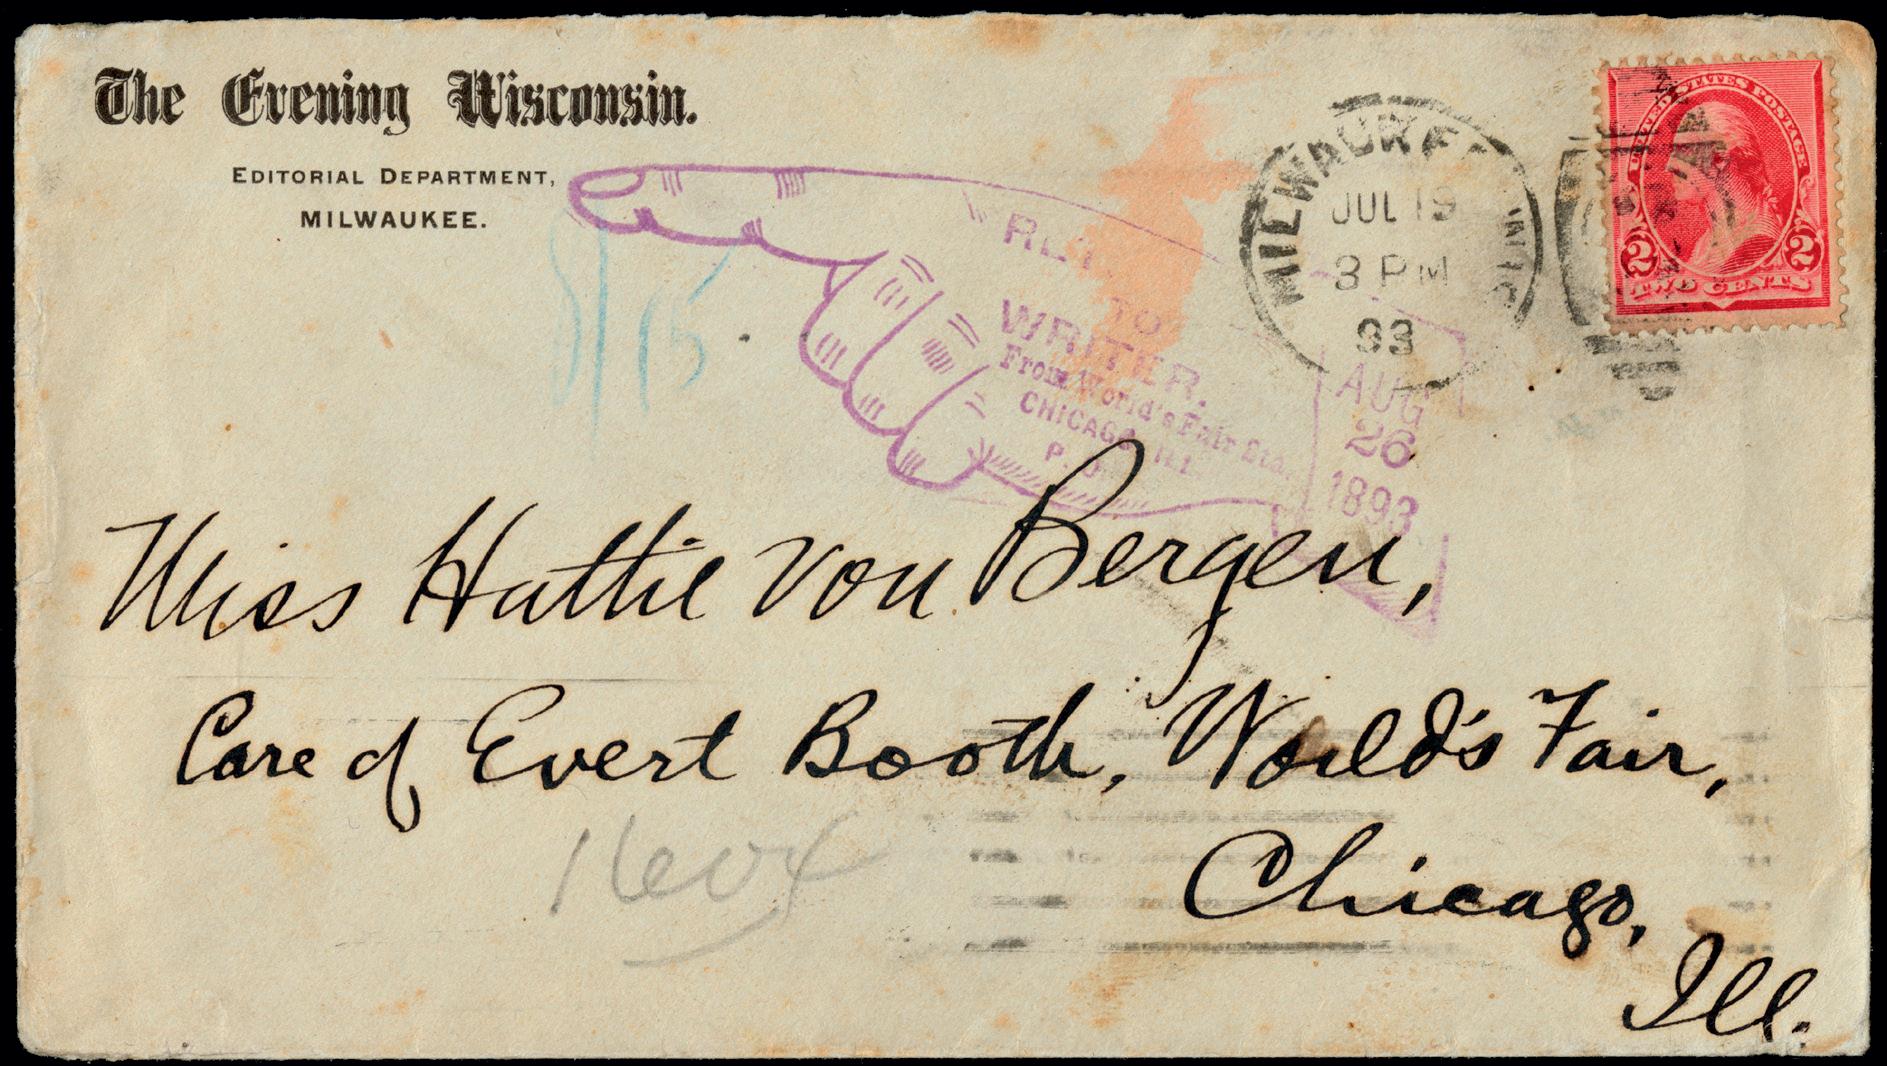 The Evening Wisconsin.
EDITORIAL DEPARTMENT,
MILWAUKEE.
MILWAUKEE WIS
JUL 19
3 PM
93
UNITED STATES POSTAGE
2 2
TWO CENTS
TO
WRITER.
From World's Fair Sta.
CHICAGO, ILL.
P. O.
AUG
26
1893
Miss Hattie von Bergen,
Care of Evert Booth, World's Fair,
Chicago,
Ill.